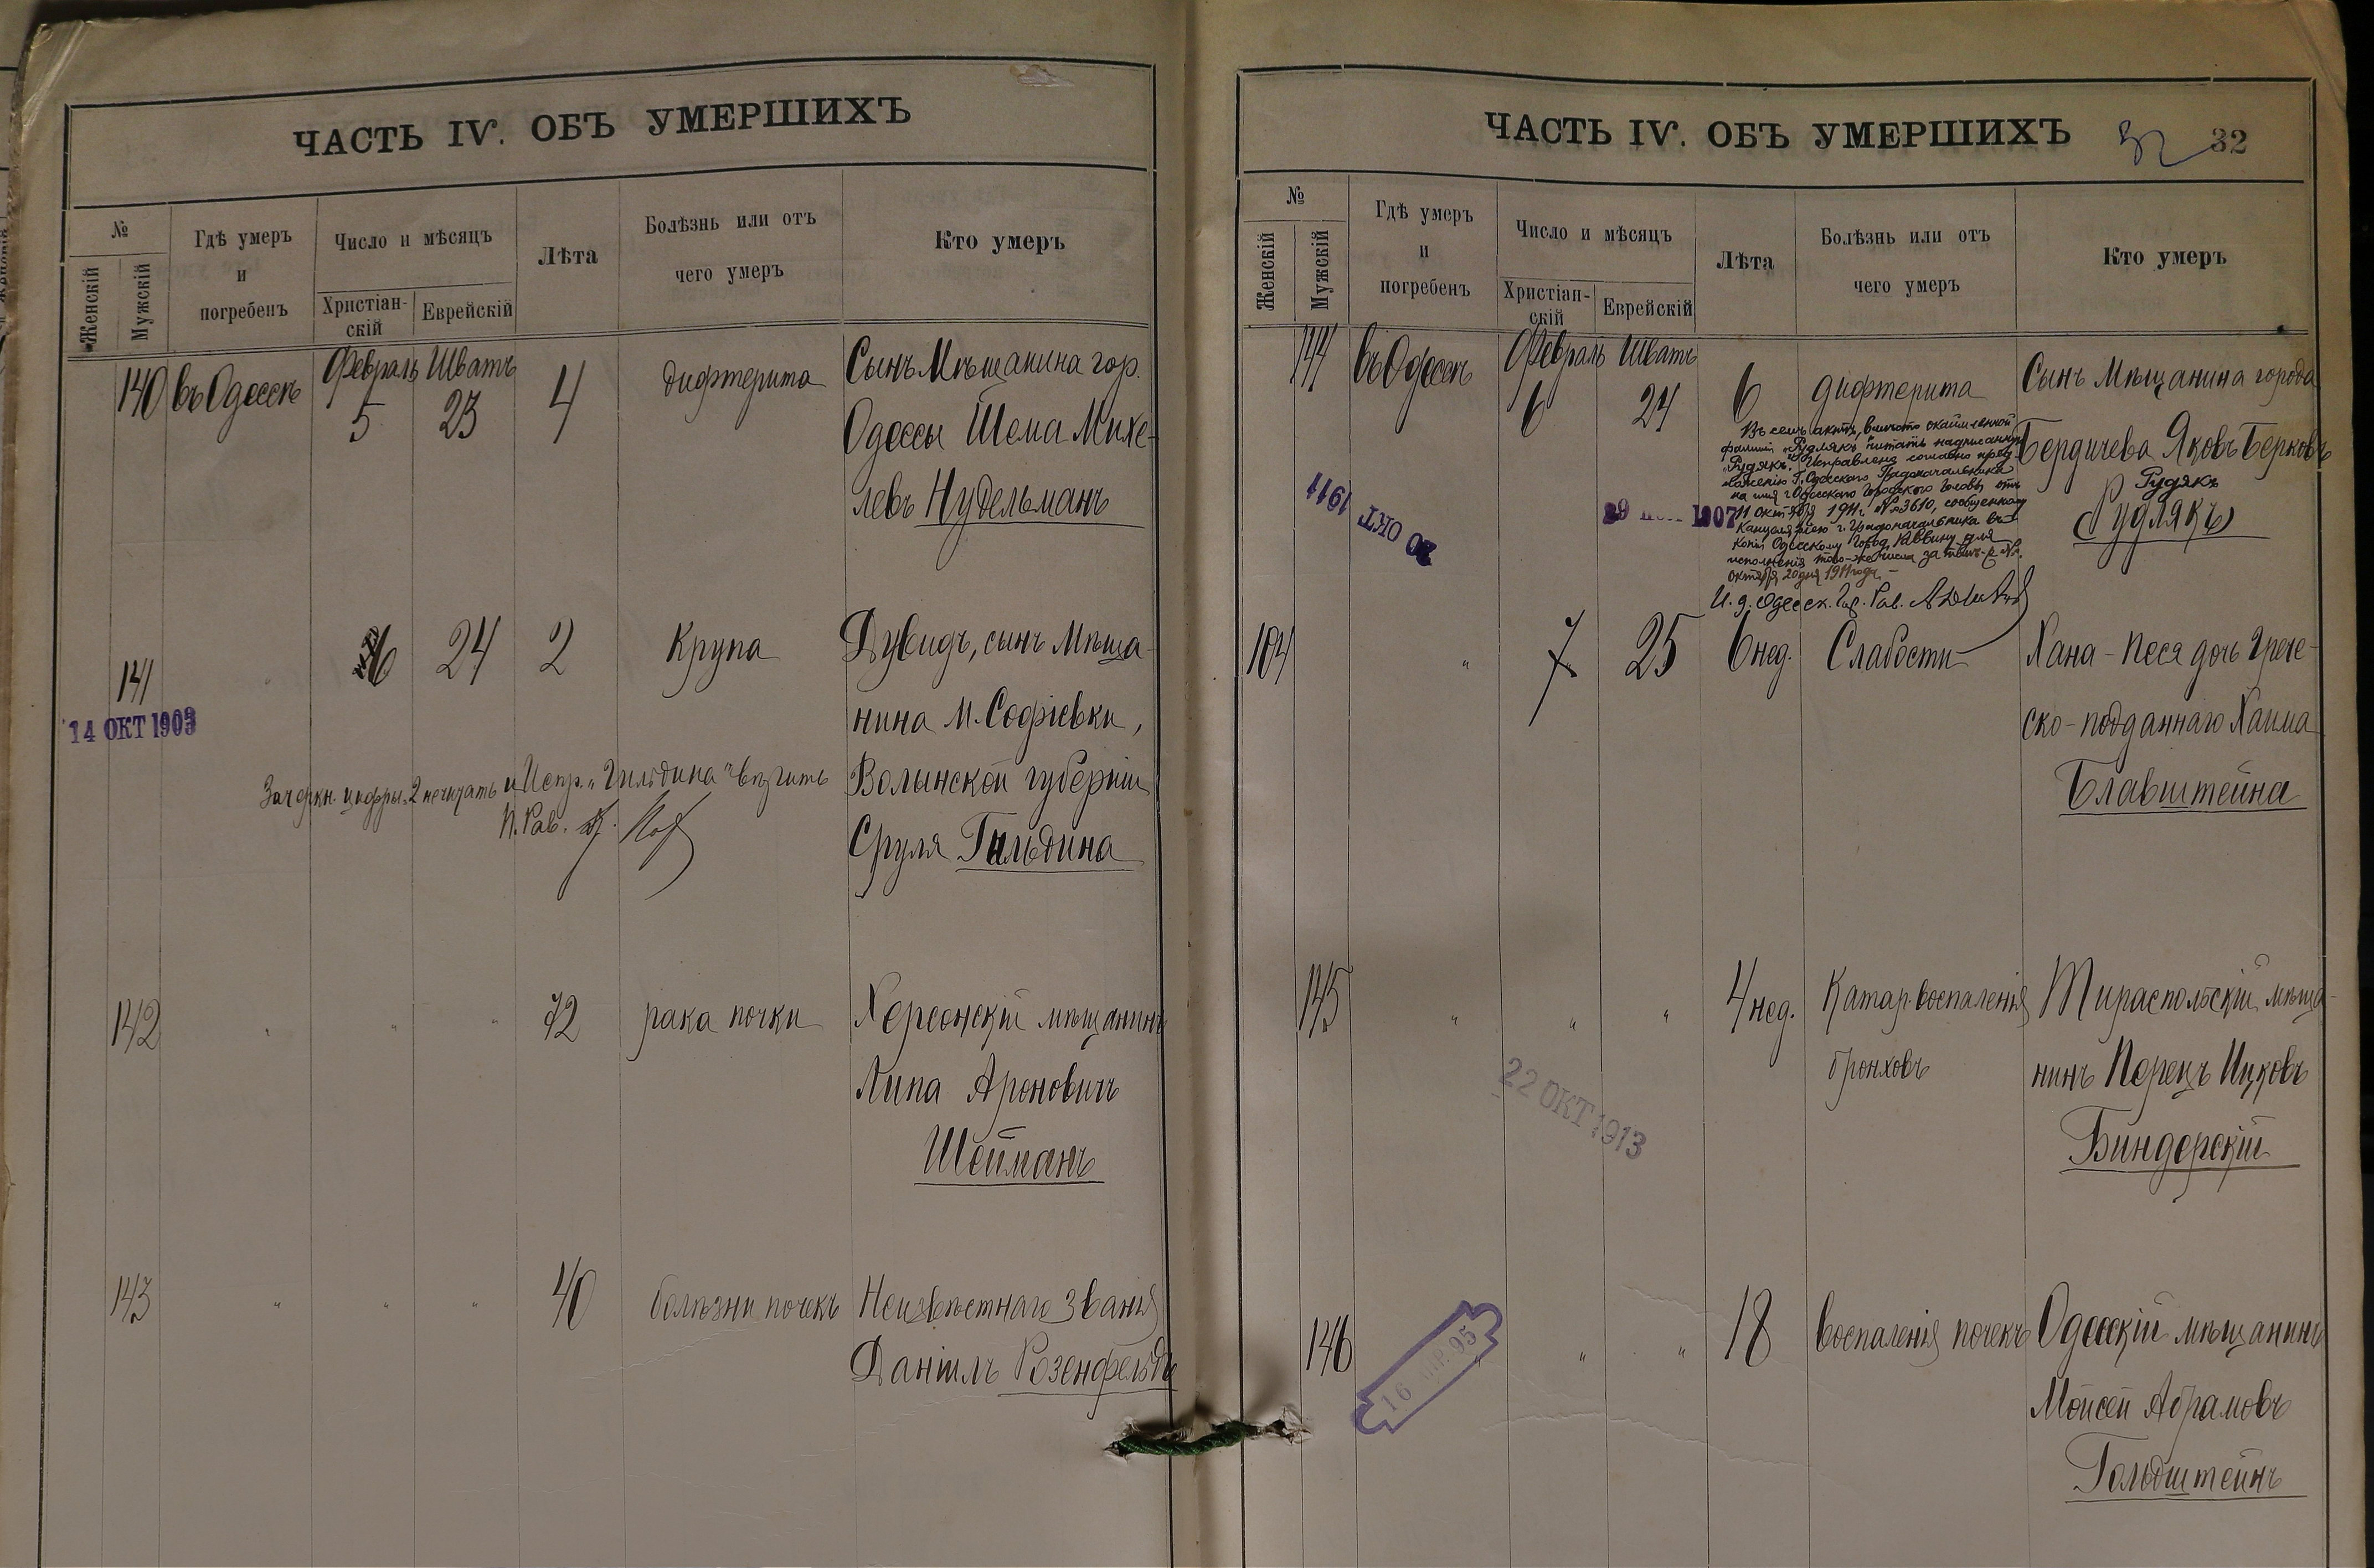 ЧАСТЬ IV. ОБЪ УМЕРШИХЪ
№
Женскій
Мужскій
Гдѣ умеръ
и
погребенъ
Число и мѣсяцъ
Христіан-
скій
Еврейскій
Лѣта
Болѣзнь или отъ
чего умеръ
Кто умеръ
140 въ Одессѣ Февраль Шватъ
5 23 4 дифтерита
Сынъ Мѣщанина гор.
Одессы Шема Михе-
левъ Нудельманъ
141 " 6 24 2 Крупа
14 ОКТ 1903
Дувидъ, сынъ Мѣща-
нина М. Софіевки,
Волынской губерніи
Сруля Гильдина
Зачеркн. цифры "2 не читать и Испр. "Гильдина" вѣрить
П. Рав.
142 " " " 72 рака почки
Херсонскій мѣщанинъ
Липа Ароновичъ
Шейманъ
143 " " " 40 болѣзни почекъ
Неизвѣстнаго званія
Даніилъ Розенфельдъ
ЧАСТЬ IV. ОБЪ УМЕРШИХЪ
32 32
№
Женскій
Мужскій
Гдѣ умеръ
и
погребенъ
Число и мѣсяцъ
Христіан-
скій
Еврейскій
Лѣта
Болѣзнь или отъ
чего умеръ
Кто умеръ
144 въ Одессѣ Февраль Шватъ
6 24 6 дифтерита
Сынъ Мѣщанина города
Бердичева Яковъ Берковъ
Рудякъ
(Рудлякъ)
Въ семъ актѣ, вмѣсто окаймленной
фамиліи "Рудлякъ" читать надписанную
"Рудякъ". Исправлено согласно пред-
ложенію Г. Одесскаго Градоначальника
на имя г. Одесскаго Городского Головы отъ
11 октября 1911 г. № 3610, сообщенному
Канцеляріею г. Градоначальника въ
копіи Одесскому Город. Раввину для
исполненія того-же числа за тѣмъ-же №.
Октября 20 дня 1911 года.
И. д. Одесск. Гор. Рав.
20 ОКТ 1911
29 1907
104 " 7 25 6 нед. Слабости
Хана-Песя дочь Грече-
ско-подданнаго Хаима
Блавштейна
145 " " " 4 нед. Катар. воспаленія
бронховъ
Тираспольскій мѣща-
нинъ Перецъ Ицковъ
Биндерскій
22 ОКТ 1913
146 " " " 18 воспаленія почекъ
16 95
Одесскій мѣщанинъ
Мойсей Абрамовъ
Гольдштейнъ